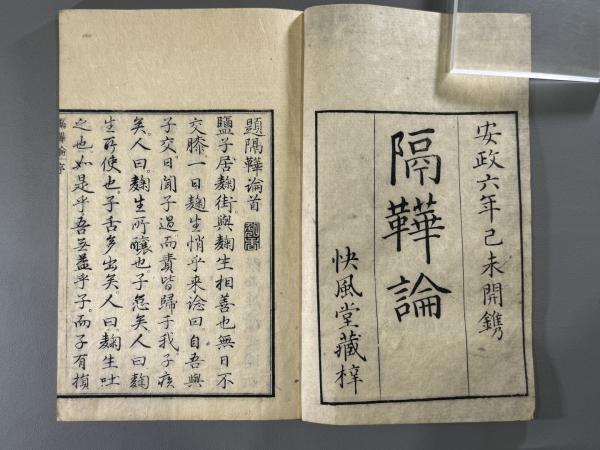 安政六年己未開鐫
隔鞾論
快風堂藏梓
題隔鞾論首
鹽子居麹街與麹生相善也無日不
交膝一日麹生悄乎来諗曰自吾與
子交日聞子過而責皆歸于我子疾
矣人曰麹生所釀也子怠矣人曰麹
生所使也子舌多出矣人曰麹生吐
之也如是乎吾無益乎子而子有損
隔鞾論序